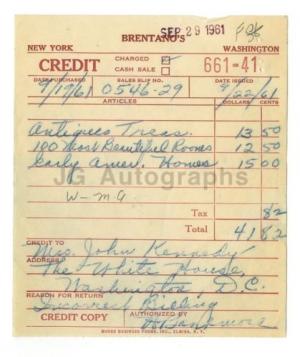 SEP 29 1961
BRENTANO'S
NEW YORK
WASHINGTON
CREDIT
CHARGED
CASH SALE
661-41
DATE PURCHASED
SALES SLIP NO.
DATE ISSUED
9/19/61
0546-29
9/22/61
ARTICLES
DOLLARS
CENTS
Antiques Treas. 13 50
100 Most Beautiful Rooms 12 50
Early Amer. Homes 15 00
JG Autographs
W-MG
Tax 82
Total 41 82
CREDIT TO
Mrs. John Kennedy
ADDRESS
The White House,
Washington, D.C.
REASON FOR RETURN
Incorrect Billing
CREDIT COPY
AUTHORIZED BY